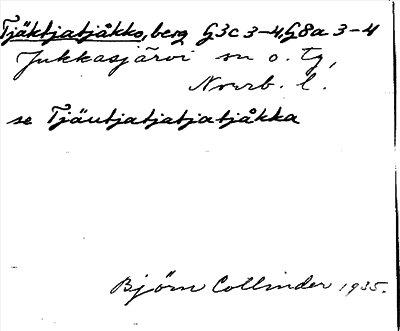 Tjäktjatjåkko, berg G3c 3-4, G8a 3-4
Jukkasjärvi sn o. tg,
Norrb. l.
se Tjäutjatjatjatjåkka
Björn Collinder 1935.